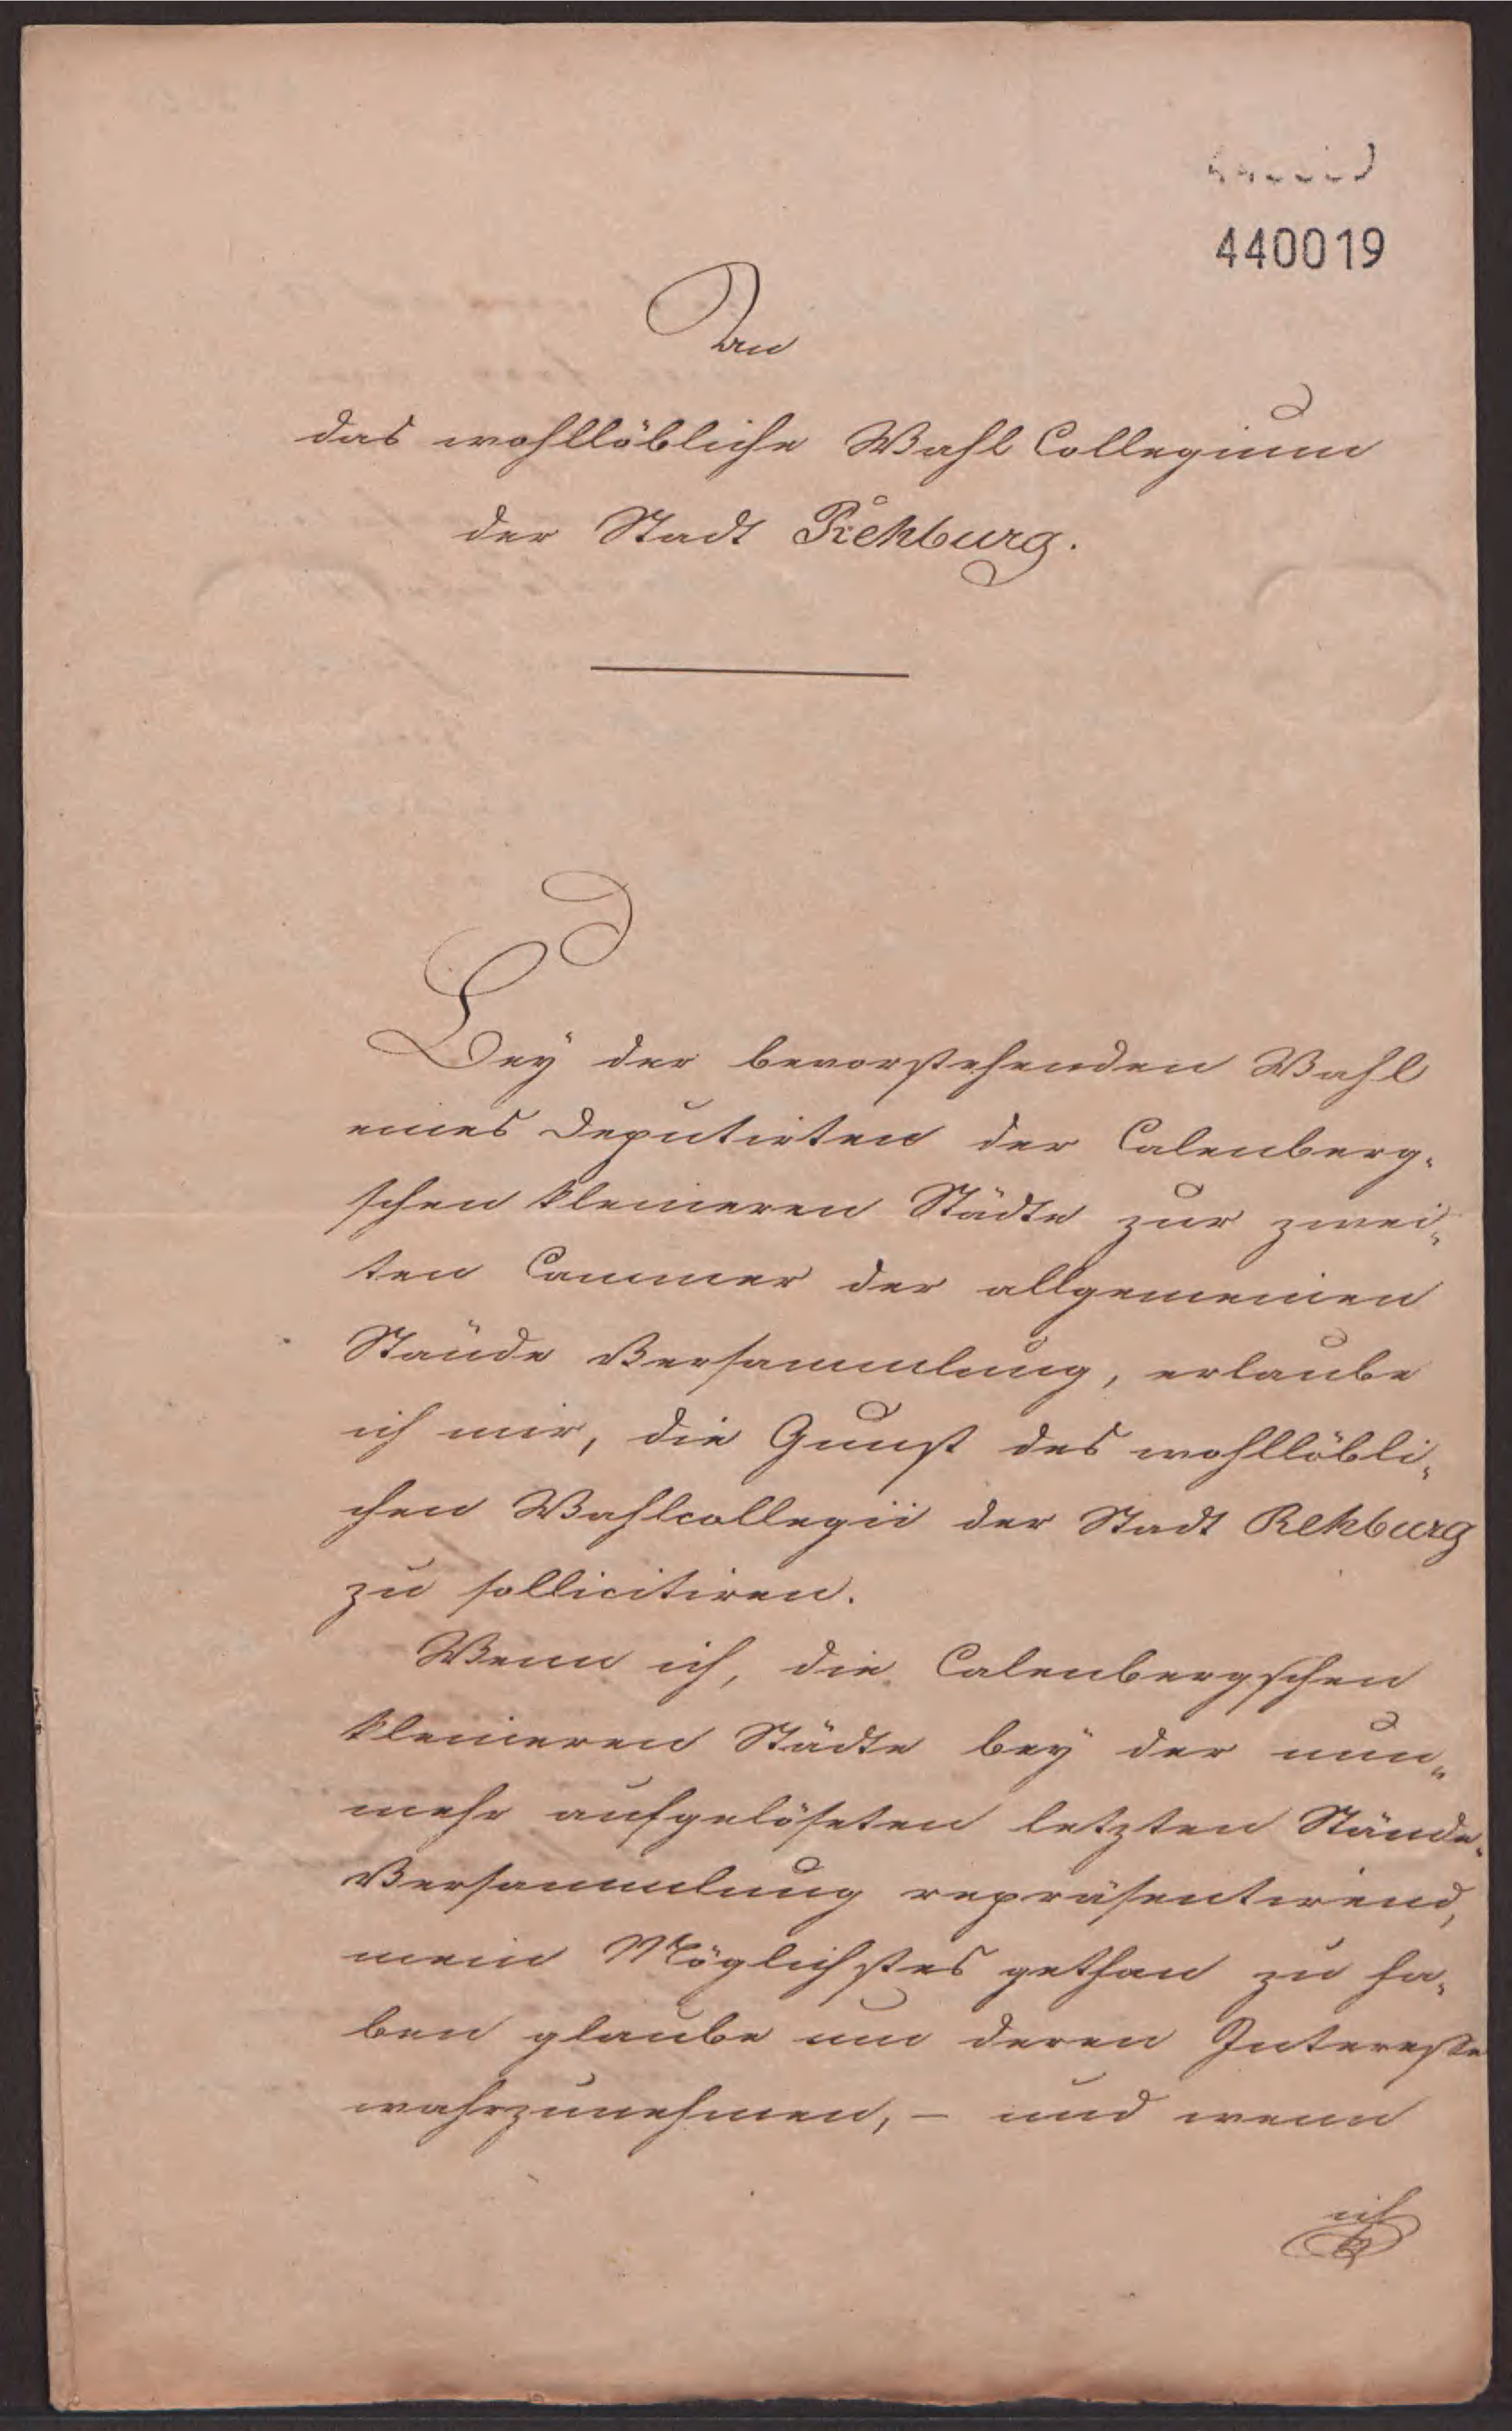 440019
An
das wohllöbliche Wahl Collegium
der Stadt Rehburg.
Bey der bevorstehenden Wahl
eines Deputirten der Calenberg-
schen kleineren Städte zur zwei-
ten Cammer der allgemeinen
Stände Versammlung, erlaube
ich mir, die Gunst des wohllöbli-
chen Wahlcollegii der Stadt Rehburg
zu sollicitiren.
Wenn ich, die Calenbergschen
kleineren Städte bey der nun-
mehr aufgelöseten letzten Stände-
Versammlung repräsentirend,
mein Möglichstes gethan zu ha-
ben glaube um deren Interesse
wahrzunehmen, – und wenn
ich